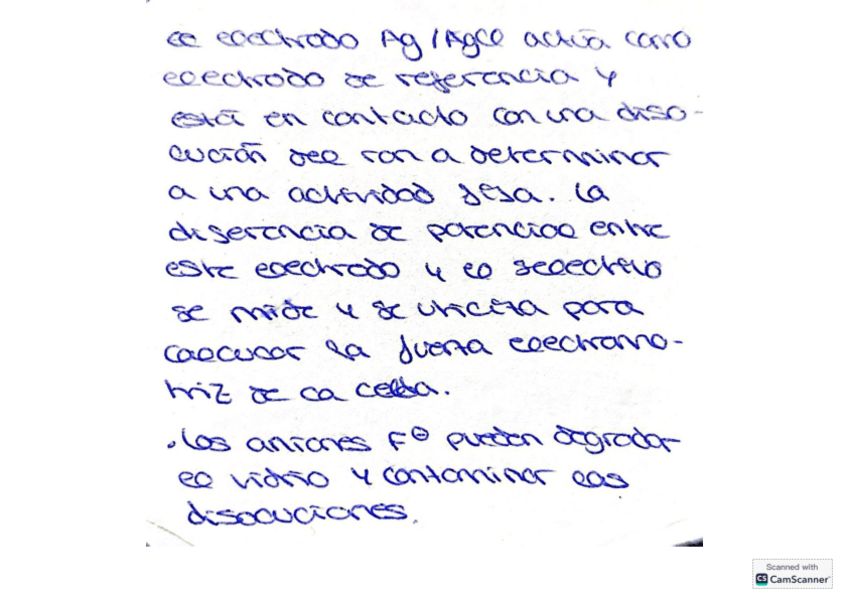 el electrodo Ag/AgCl actúa como
electrodo de referencia y
está en contacto con una diso-
lución del ion a determinar
a una actividad fija. La
diferencia de potencial entre
este electrodo y el selectivo
se mide y se utiliza para
calcular la fuerza electromo-
triz de la celda.
. Los aniones F⊖ pueden degradar
el vidrio y contaminar las
disoluciones.
Scanned with
CS CamScanner